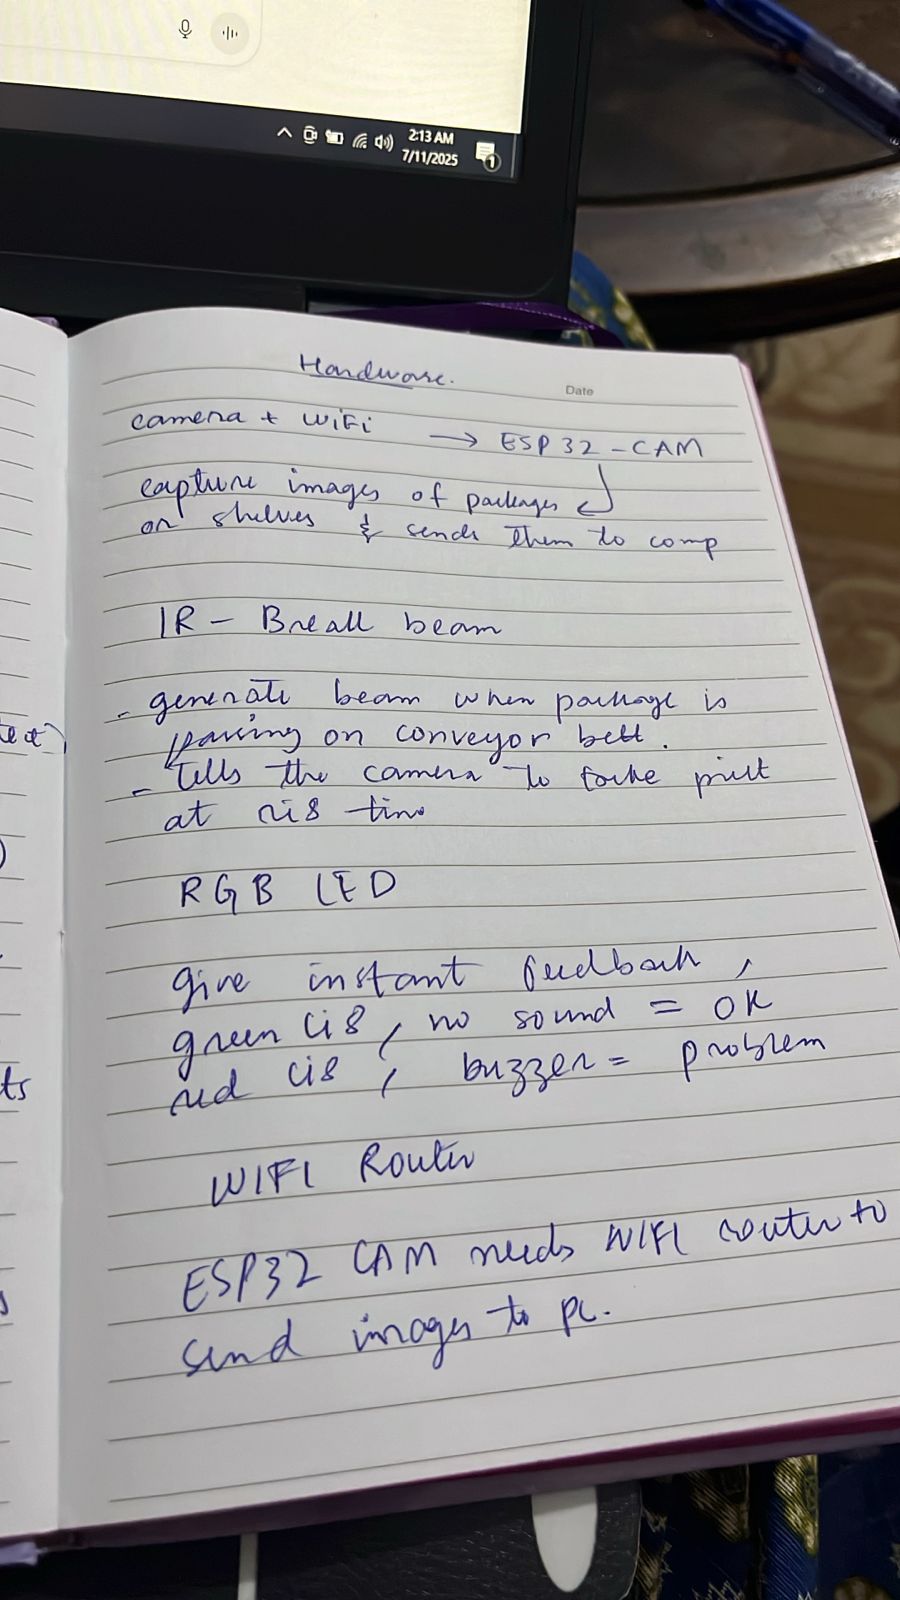 2:13 AM
7/11/2025
1
Hardware.
Date
camera + WiFi → ESP32-CAM
capture images of packages
on shelves & sends them to comp
IR - Break beam
- generate beam when package is
passing on conveyor belt.
- Tells the camera to take pict
at ri8 time
RGB LED
Give instant feedback,
green li8, no sound = OK
red li8, buzzer = problem
WIFI Router
ESP32 CAM needs WIFI router to
send images to pc.
ts